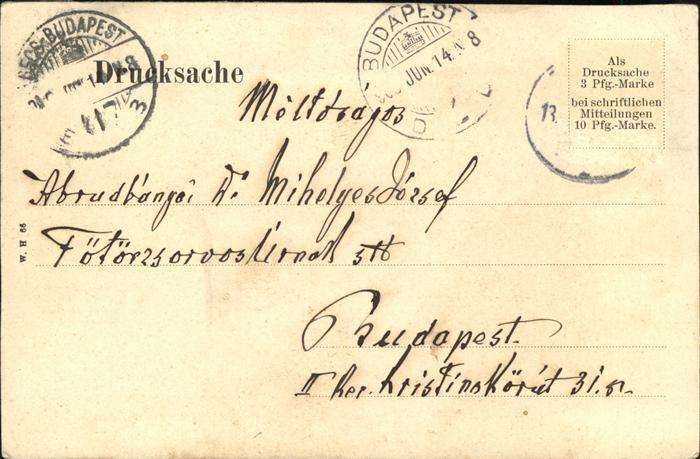 BÉCS-BUDAPEST
417
3
BUDAPEST
JUN. 14. N 8
Drucksache
Als
Drucksache
3 Pfg.-Marke
bei schriftlichen
Mitteilungen
10 Pfg.-Marke.
13
Méltóságos
Abrudbányai Dr Mihelyes József
Főtörzsorvos Úrnak stb
Budapest.
II ker. Krisztina Körút 31. sz.
W. H 66